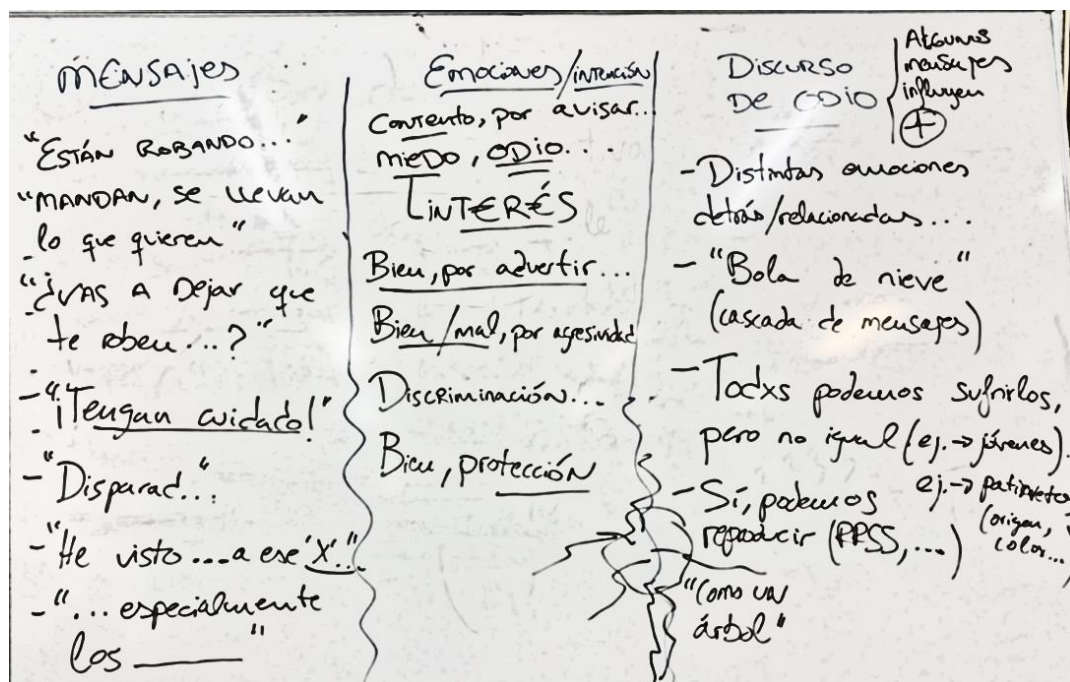 MENSAJES
"ESTÁN ROBANDO..."
"MANDAN, SE LLEVAN
lo que quieren"
"¿VAS A Dejar que
te roben...?"
- "¡Tengan cuidado!"
- "Disparad..."
- "He visto ... a ese 'X'..."
- "... especialmente
los ______"
Emociones/intención
Contento, por avisar...
mieDo, ODio...
INT€R€S
Bien, por advertir...
Bien/mal, por agresividad
Discriminación...
Bien, protección
DISCURSO
DE ODIO
Algunos
mensajes
influyen
+
- Distintas emociones
detrás/relacionadas....
- "Bola de nieve"
(cascada de mensajes)
- Todxs podemos sufrirlos,
pero no igual (ej. → jóvenes).
ej. → patinetes
(origen,
color...)
- Sí, podemos
reproducir (RRSS, ...)
"Como un
árbol"